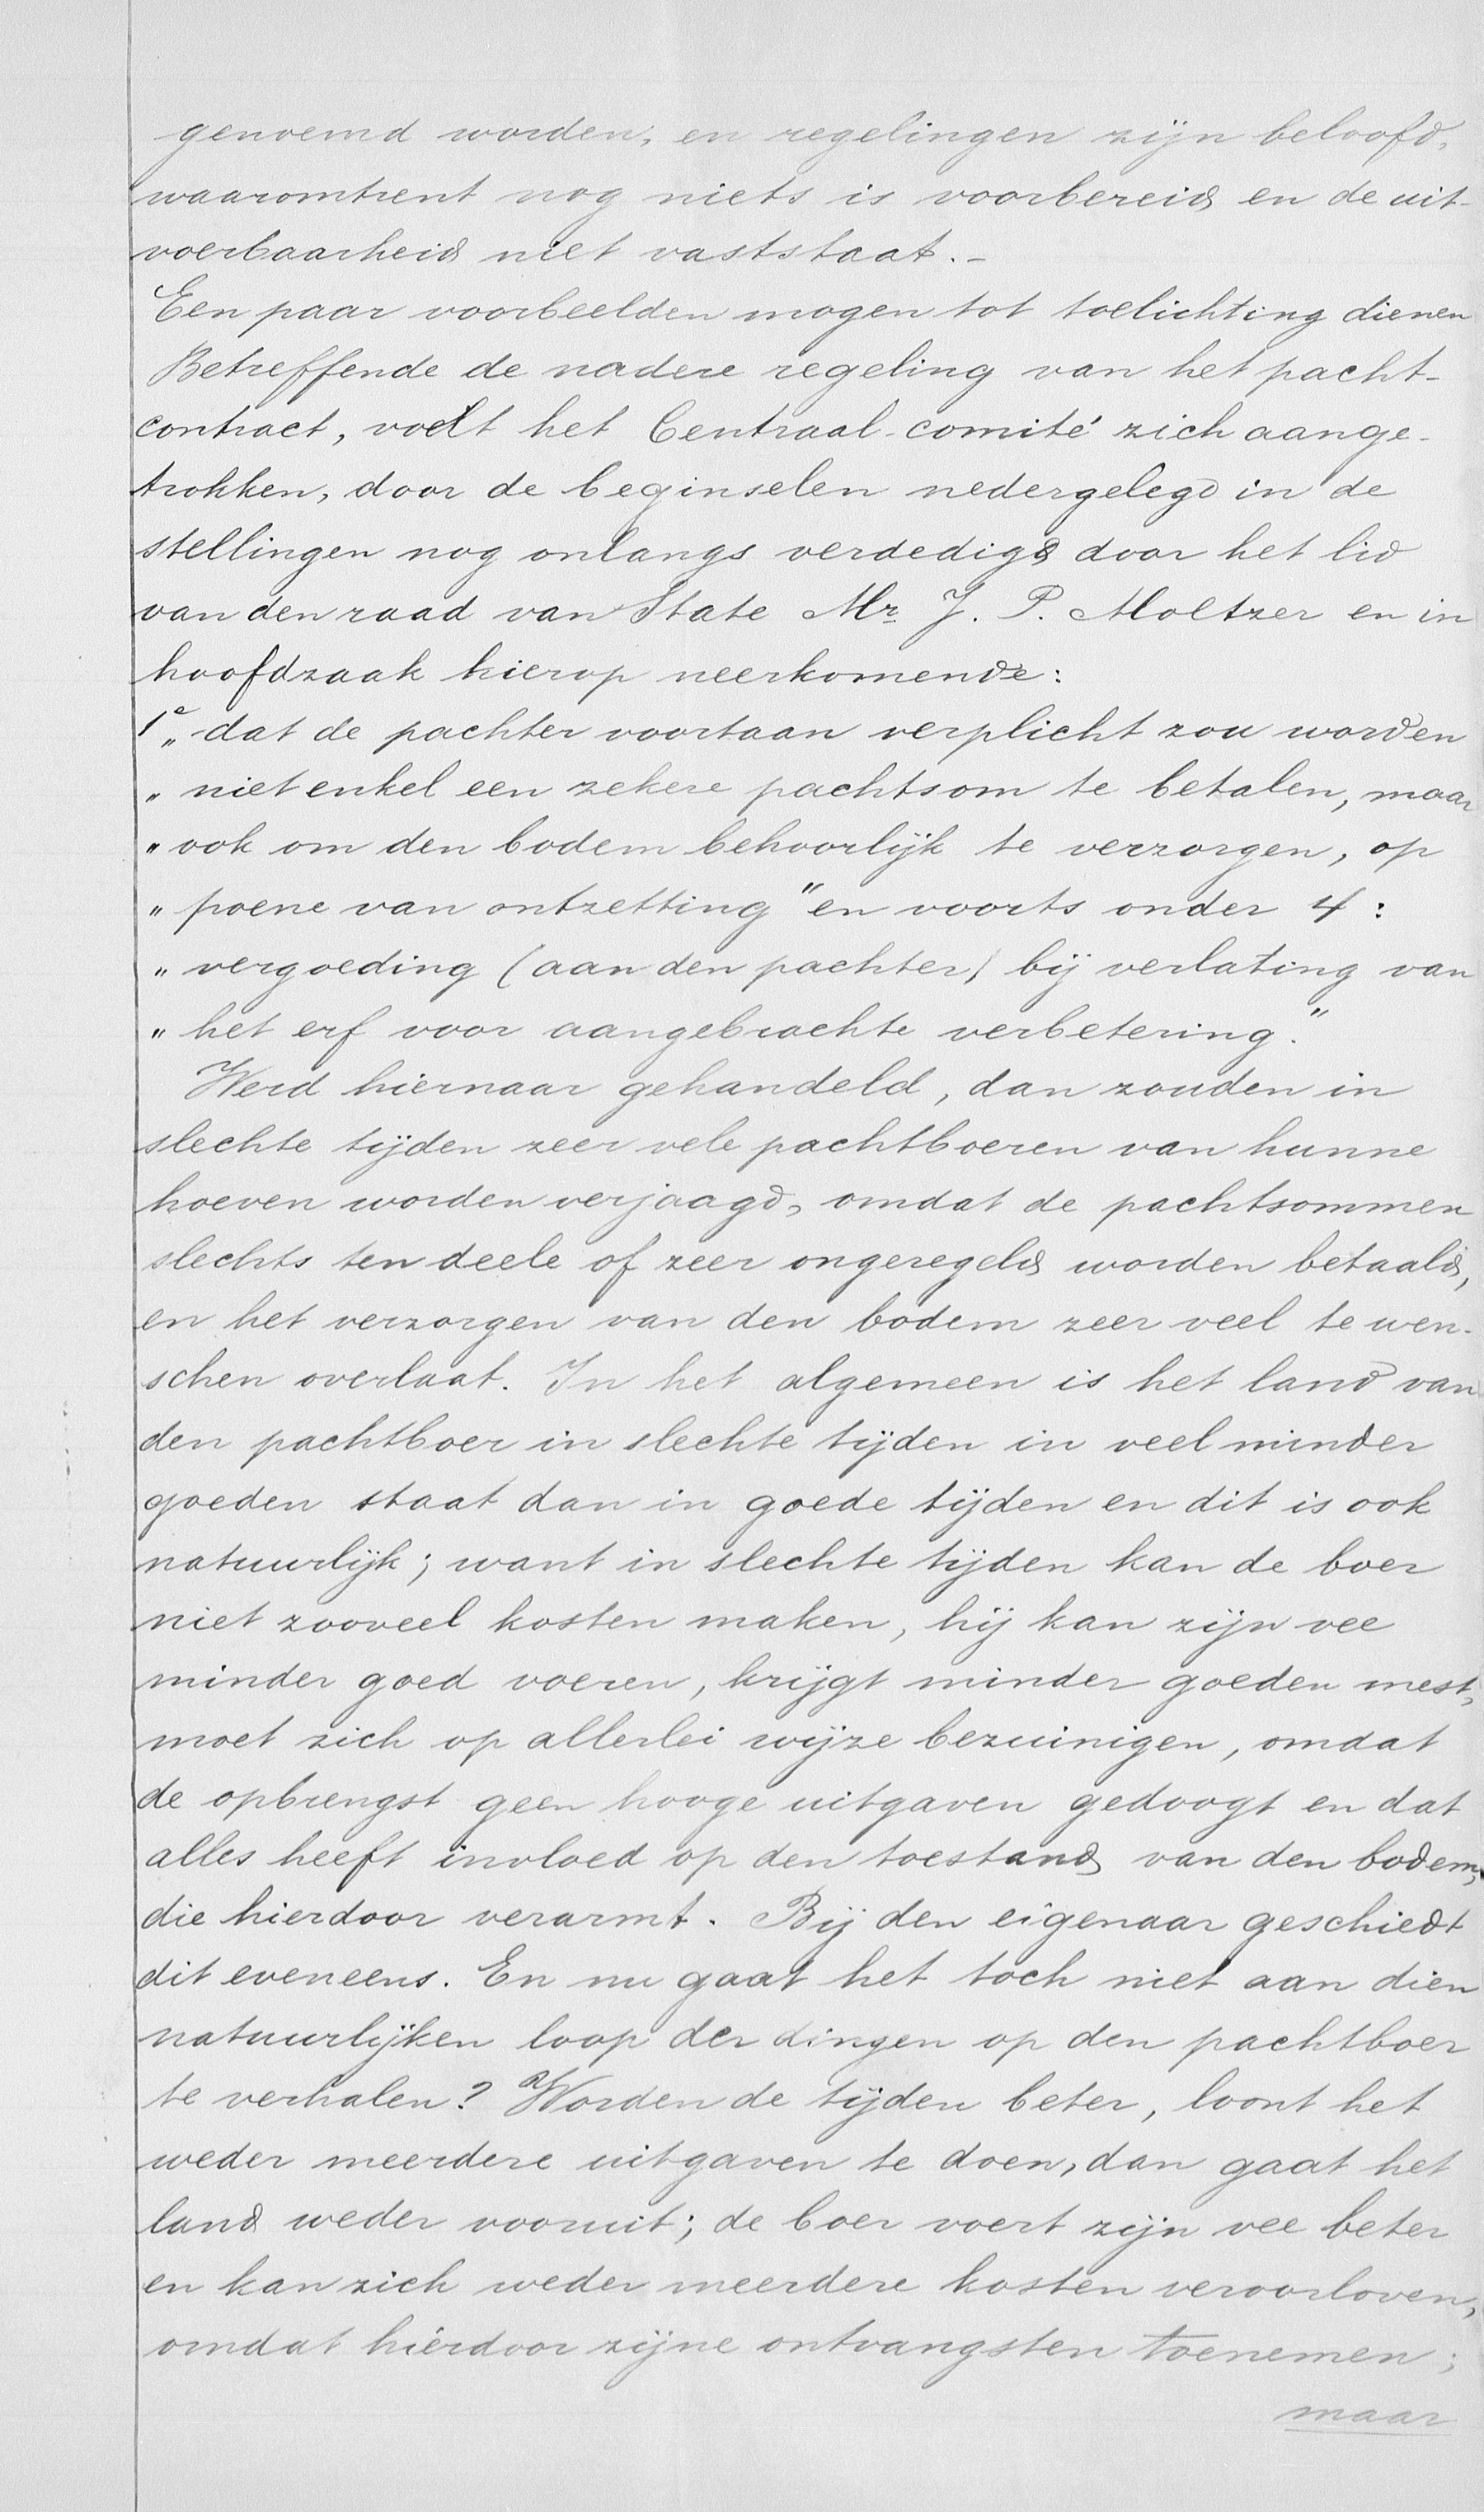 genoemd worden, en regelingen zijn beloofd,
waaromtrent nog niets is voorbereid en de uit-
voerbaarheid niet vaststaat.-
Een paar voorbeelden mogen tot toelichting dienen
Betreffende de nadere regeling van het pacht-
contract, voelt het Centraal-comité zich aange-
trokken, door de beginselen nedergelegd in de
stellingen nog onlangs verdedigd door het lid
van den raad van State Mr. J. P. Moltzer en in
hoofdzaak hierop neerkomende:
1e „ dat de pachter voortaan verplicht zou worden
„ niet enkel een zekere pachtsom te betalen, maar
„ ook om den bodem behoorlijk te verzorgen, op
„ poene van ontzetting" en voorts onder 4:
„ vergoeding (aan den pachter) bij verlating van
„ het erf voor aangebrachte verbetering."
Werd hiernaar gehandeld, dan zouden in
slechte tijden zeer vele pachtboeren van hunne
hoeven worden verjaagd, omdat de pachtsommen
slechts ten deele of zeer ongeregeld worden betaald,
en het verzorgen van den bodem zeer veel te wen-
schen overlaat. In het algemeen is het land van
den pachtboer in slechte tijden in veel minder
goeden staat dan in goede tijden en dit is ook
natuurlijk; want in slechte tijden kan de boer
niet zooveel kosten maken, hij kan zijn vee
minder goed voeren, krijgt minder goeden mest,
moet zich op allerlei wijze bezuinigen, omdat
de opbrengst geen hooge uitgaven gedoogt en dat
alles heeft invloed op den toestand van den bodem,
die hierdoor verarmt. Bij den eigenaar geschiedt
dit eveneens. En nu gaat het toch niet aan dien
natuurlijken loop der dingen op den pachtboer
te verhalen? Worden de tijden beter, loont het
weder meerdere uitgaven te doen, dan gaat het
land weder vooruit; de boer voert zijn vee beter
en kan zich weder meerdere kosten veroorloven,
omdat hierdoor zijne ontvangsten toenemen;
maar